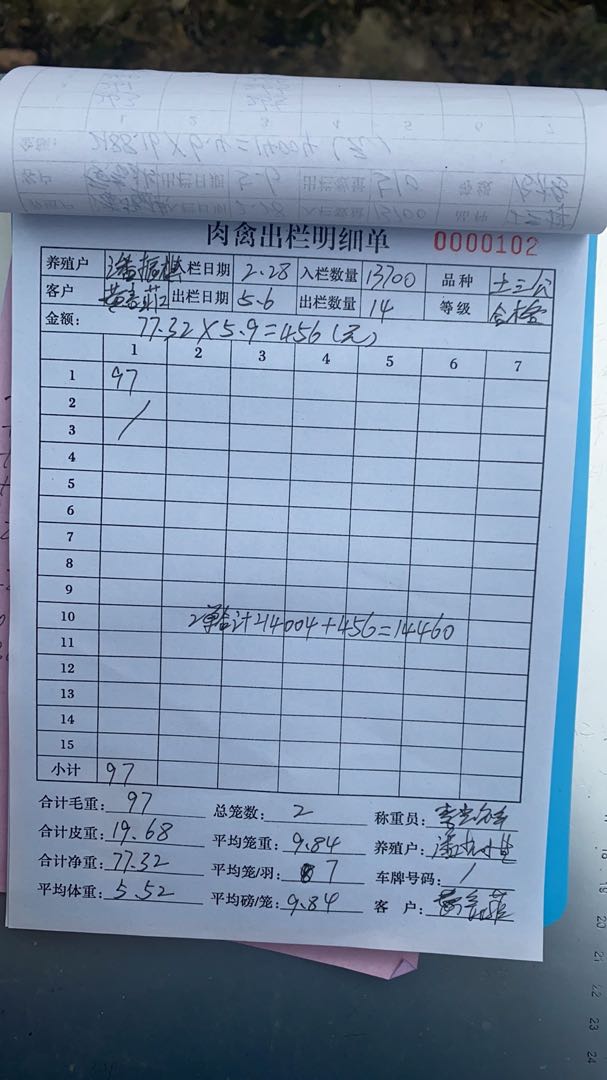 肉禽出栏明细单 0000102
养殖户 入栏日期 2.28 入栏数量 13700 品种 土三公
客户 出栏日期 5.6 出栏数量 14 等级 合格
金额: 77.32×5.9=456(元)
1 2 3 4 5 6 7
1 97
2
3 /
4
5
6
7
8
9
10 2单合计214004+456=14460
11
12
13
14
15
小计 97
合计毛重: 97 总笼数: 2 称重员:
合计皮重: 19.68 平均笼重: 9.84 养殖户:
合计净重: 77.32 平均笼/羽: 7 车牌号码: /
平均体重: 5.52 平均磅/笼: 9.84 客 户:
18
19
20
21
22
23
24